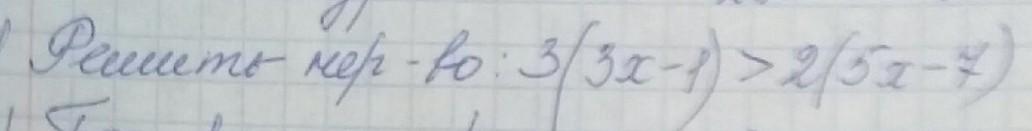 Решить нер-во: 3(3x-1)>2(5x-7)